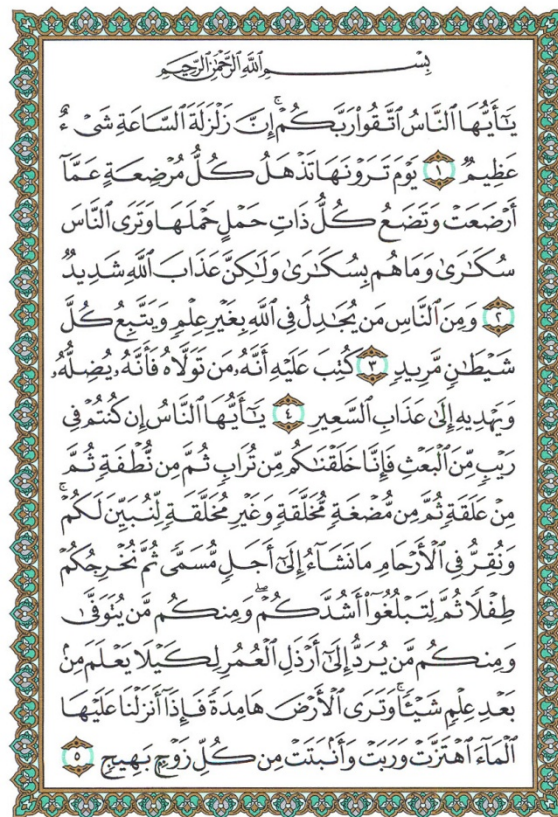 بِسْمِ ٱللَّهِ ٱلرَّحْمَٰنِ ٱلرَّحِيمِ
يَـٰٓأَيُّهَا ٱلنَّاسُ ٱتَّقُوا۟ رَبَّكُمْ ۚ إِنَّ زَلْزَلَةَ ٱلسَّاعَةِ شَىْءٌ
عَظِيمٌ ١ يَوْمَ تَرَوْنَهَا تَذْهَلُ كُلُّ مُرْضِعَةٍ عَمَّآ
أَرْضَعَتْ وَتَضَعُ كُلُّ ذَاتِ حَمْلٍ حَمْلَهَا وَتَرَى ٱلنَّاسَ
سُكَـٰرَىٰ وَمَا هُم بِسُكَـٰرَىٰ وَلَـٰكِنَّ عَذَابَ ٱللَّهِ شَدِيدٌ
٢ وَمِنَ ٱلنَّاسِ مَن يُجَـٰدِلُ فِى ٱللَّهِ بِغَيْرِ عِلْمٍ وَيَتَّبِعُ كُلَّ
شَيْطَـٰنٍ مَّرِيدٍ ٣ كُتِبَ عَلَيْهِ أَنَّهُۥ مَن تَوَلَّاهُ فَأَنَّهُۥ يُضِلُّهُۥ
وَيَهْدِيهِ إِلَىٰ عَذَابِ ٱلسَّعِيرِ ٤ يَـٰٓأَيُّهَا ٱلنَّاسُ إِن كُنتُمْ فِى
رَيْبٍ مِّنَ ٱلْبَعْثِ فَإِنَّا خَلَقْنَـٰكُم مِّن تُرَابٍ ثُمَّ مِن نُّطْفَةٍ ثُمَّ
مِنْ عَلَقَةٍ ثُمَّ مِن مُّضْغَةٍ مُّخَلَّقَةٍ وَغَيْرِ مُخَلَّقَةٍ لِّنُبَيِّنَ لَكُمْ ۚ
وَنُقِرُّ فِى ٱلْأَرْحَامِ مَا نَشَآءُ إِلَىٰٓ أَجَلٍ مُّسَمًّى ثُمَّ نُخْرِجُكُمْ
طِفْلًا ثُمَّ لِتَبْلُغُوٓا۟ أَشُدَّكُمْ ۖ وَمِنكُم مَّن يُتَوَفَّىٰ
وَمِنكُم مَّن يُرَدُّ إِلَىٰٓ أَرْذَلِ ٱلْعُمُرِ لِكَيْلَا يَعْلَمَ مِنۢ
بَعْدِ عِلْمٍ شَيْـًٔا ۚ وَتَرَى ٱلْأَرْضَ هَامِدَةً فَإِذَآ أَنزَلْنَا عَلَيْهَا
ٱلْمَآءَ ٱهْتَزَّتْ وَرَبَتْ وَأَنۢبَتَتْ مِن كُلِّ زَوْجٍۭ بَهِيجٍ ٥